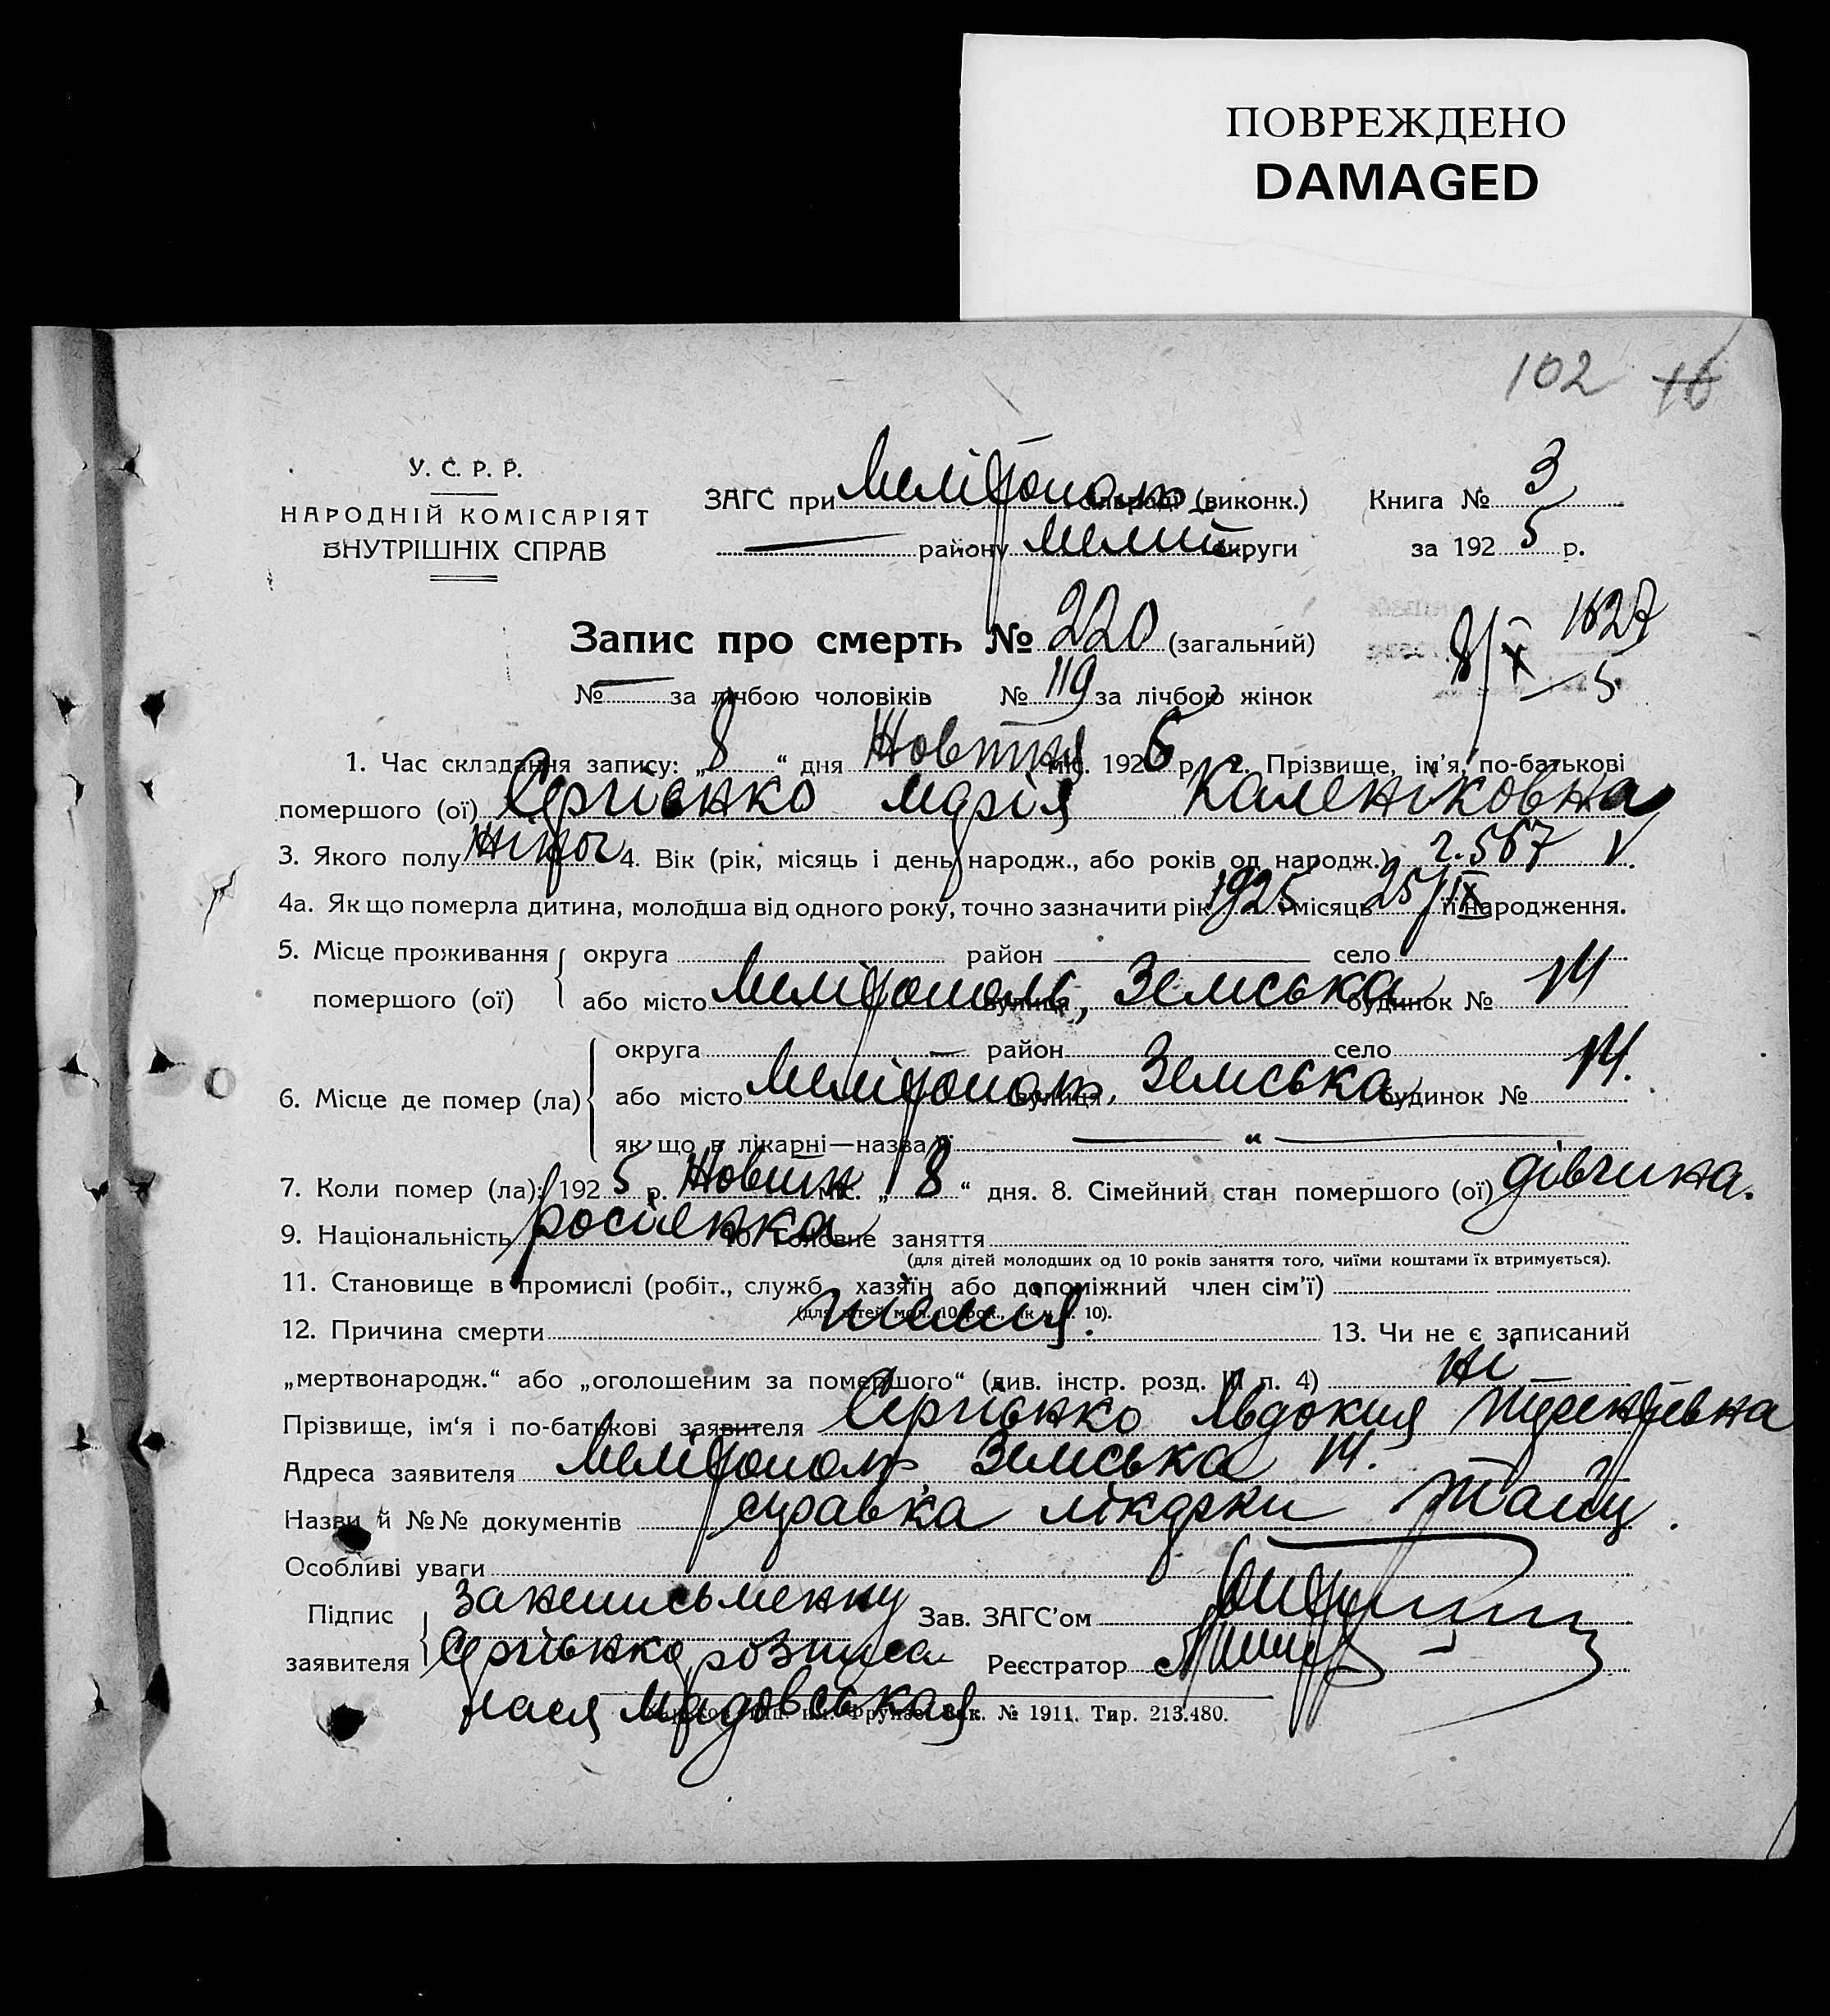 ПОВРЕЖДЕНО
DAMAGED
102 16
У. С. Р. Р.
НАРОДНІЙ КОМІСАРІЯТ
ВНУТРІШНІХ СПРАВ
ЗАГС при Мелітополь (виконк.)
району Меліт округи
Книга № 3
за 1925 р.
Запис про смерть № 220 (загальний)
№ — за лічбою чоловіків № 119 за лічбою жінок
8/X 5
1. Час складання запису: „8“ дня Жовтня міс. 1925 р. 2. Прізвище, ім'я, по-батькові
помершого (ої) Сергієнко Марія Каленіковна
3. Якого полу 4. Вік (рік, місяць і день народж., або років од народж.)
4а. Як що померла дитина, молодша від одного року, точно зазначити рік 1925 місяць 25/IX її народження.
5. Місце проживання помершого (ої) округа район село
або місто Мелітополь, вулиця Земська будинок № 14
6. Місце де помер (ла) округа — район село
або місто Мелітополь, вулиця Земська будинок № 14.
як що в лікарні—назва її — “ —
7. Коли помер (ла): 1925 р. Жовтн міс. „8“ дня. 8. Сімейний стан помершого (ої) дівчина.
9. Національність росіенка 10. Головне заняття
(для дітей молодших од 10 років заняття того, чиїми коштами їх втримується).
11. Становище в промислі (робіт., служб., хазяїн або допоміжний член сім'ї)
(для дітей мол. 10 рок., як в п. 10).
12. Причина смерти 13. Чи не є записаний
„мертвонародж.“ або „оголошеним за помершого“ (див. інстр. розд. III п. 4) ні —
Прізвище, ім'я і по-батькові заявителя Сергієнко Явдокия
Адреса заявителя Мелітополь Земська 14.
Назви й №№ документів справка лікарки
Особливі уваги
Підпис заявителя за неписьменну
Сергієнко розписа
лася
Зав. ЗАГС'ом
Реєстратор
Фрунзе Зак. № 1911. Тир. 213.480.